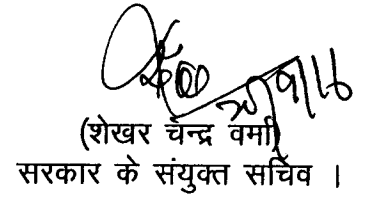 (शेखर चन्द्र वर्मा)
सरकार के संयुक्त सचिव ।